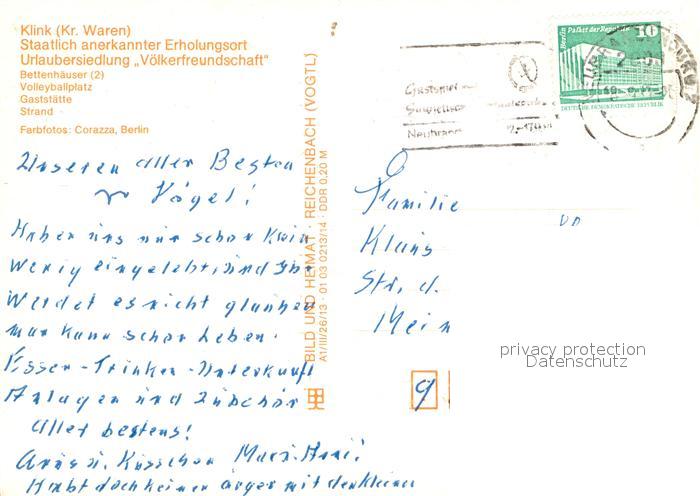 Klink (Kr. Waren)
Staatlich anerkannter Erholungsort
Urlaubersiedlung „Völkerfreundschaft"
Bettenhäuser (2)
Volleyballplatz
Gaststätte
Strand
Farbfotos: Corazza, Berlin
BILD UND HEIMAT REICHENBACH (VOGTL)
A1/III/26/13 01 03 0213/14 DDR 0,20 M
Berlin Palast der Republik
10
DEUTSCHE DEMOKRATISCHE REPUBLIK
Unseren aller Besten
Vögel!
Haben uns nun schon klein
wenig eingelebt, und Ihr
werdet es nicht glauben
man kann schon leben.
Essen - Trinken - Unterkunft
Anlagen und Zubehör
alles bestens!
Gruss u. Küsschen
Habt doch keinen Ärger mit den kleinen
Familie
Klaus
Str. d.
Mein
9
privacy protection
Datenschutz